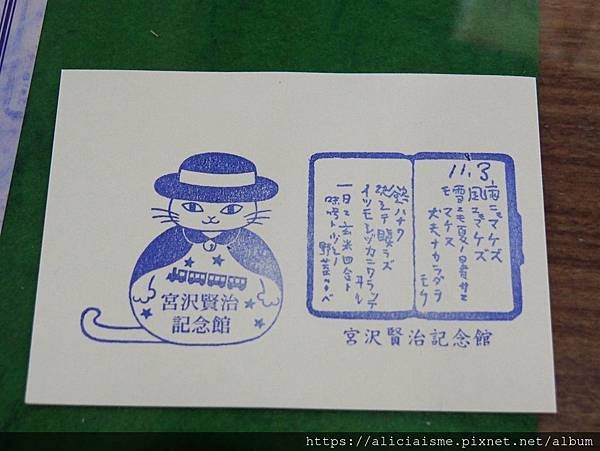 宮沢賢治
記念館
11.3.
雨ニモマケズ
風ニモマケズ
雪ニモ夏ノ暑サニ
モ マケヌ
丈夫ナカラダヲ
モチ
慾ハナク
決シテ瞋ラズ
イツモシヅカニワラッテ
ヰル
一日ニ玄米四合ト
味噌ト少シノ
野菜ヲタベ
宮沢賢治記念館
https://aliciaisme.pixnet.net/album